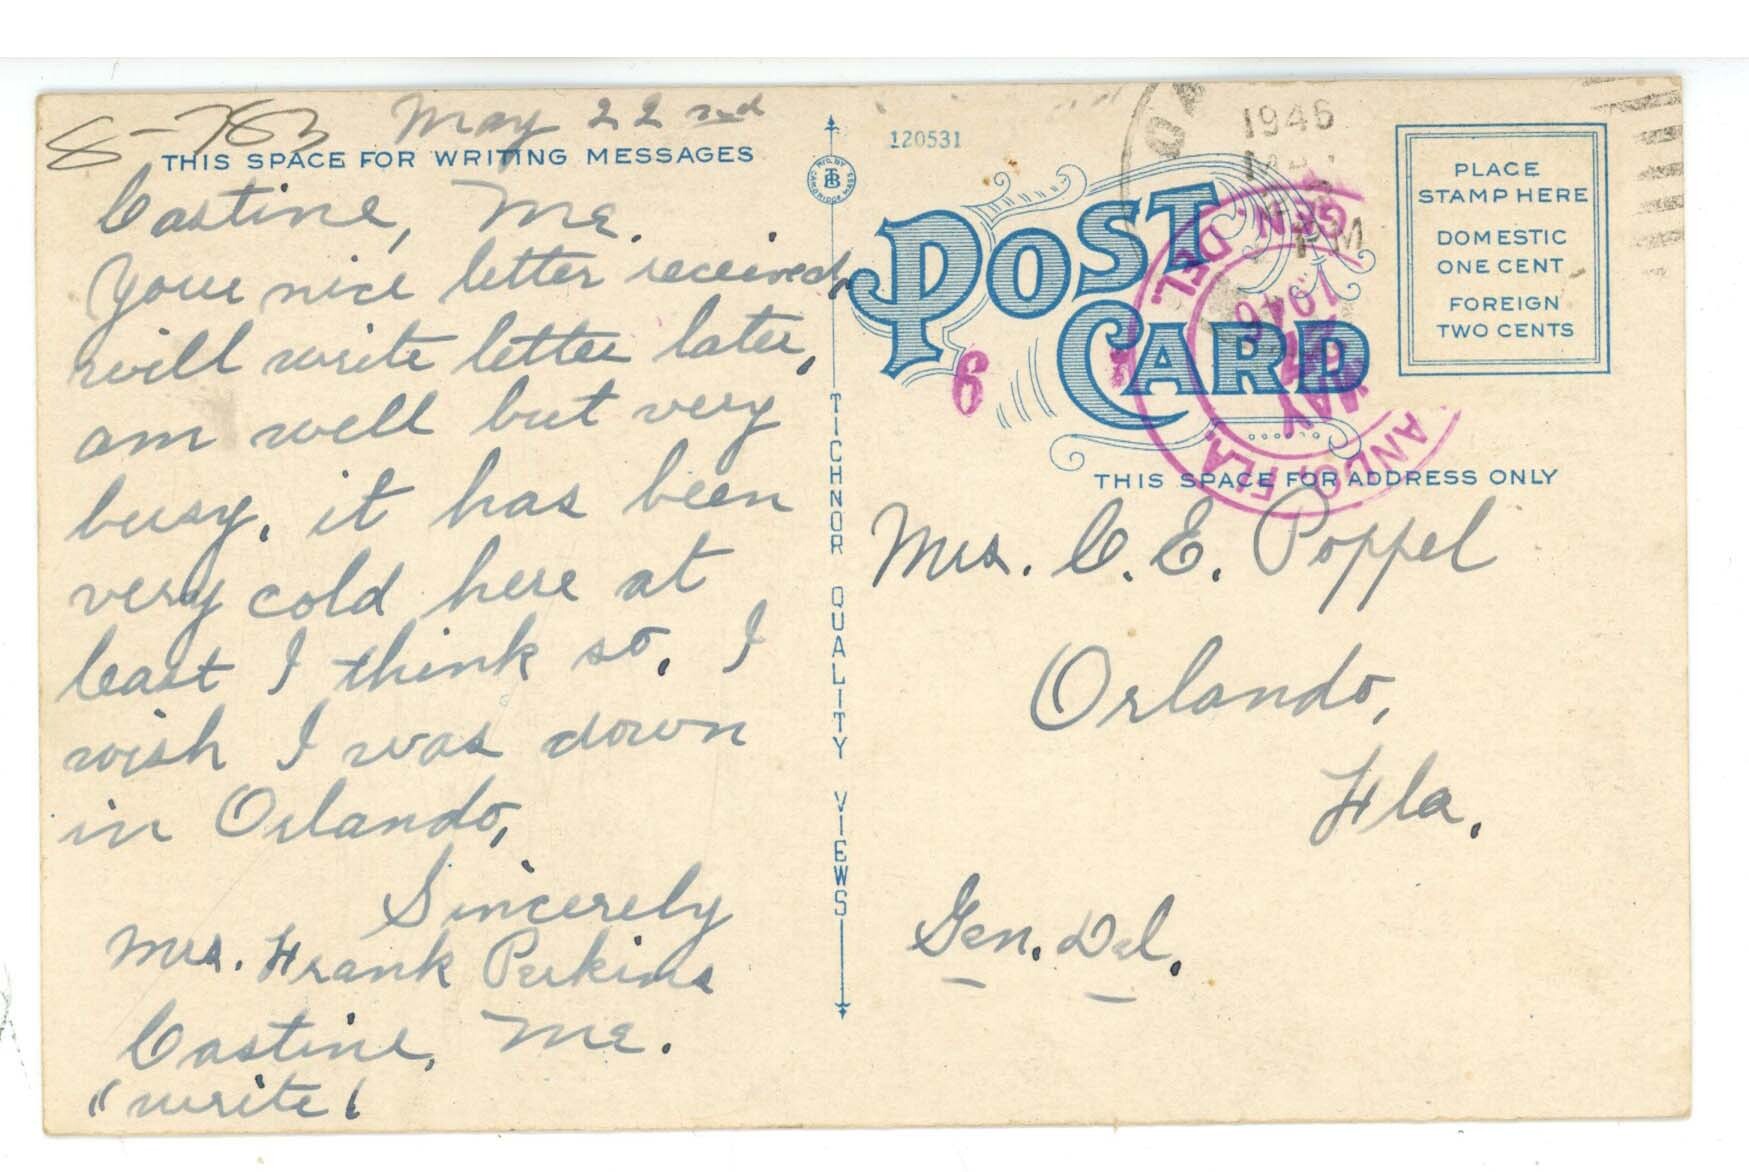 8-783 May 22nd
THIS SPACE FOR WRITING MESSAGES
Castine, Me.
Your nice letter received,
will write letter later,
am well but very
busy. it has been
very cold here at
least I think so. I
wish I was down
in Orlando,
Sincerely
Mrs. Frank Perkins
Castine, Me.
(write)
MFG. BY
CAMBRIDGE MASS.
TICHNOR QUALITY VIEWS
120531
POST CARD
1946
PM
GEN. DEL.
1946
MAY
FLA.
6
PLACE
STAMP HERE
DOMESTIC
ONE CENT
FOREIGN
TWO CENTS
THIS SPACE FOR ADDRESS ONLY
Mrs. C. E. Poppel
Orlando,
Fla.
Gen. Del.